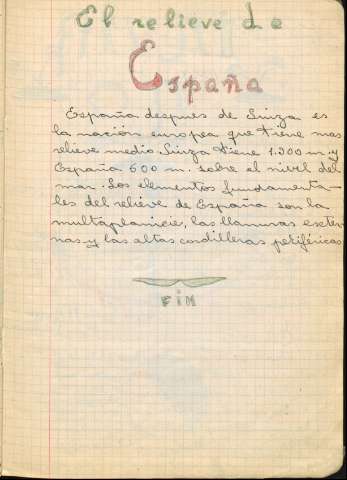 El relieve de
España
España despues de Suiza es
la nación europea que tiene mas
relieve medio. Suiza tiene 1.300 m. y
España 600 m. sobre el nivel del
mar. Los elementos fundamenta-
les del relieve de España son la
multaplanicie, las llanuras exter-
nas y las altas cordilleras periféricas
FIN